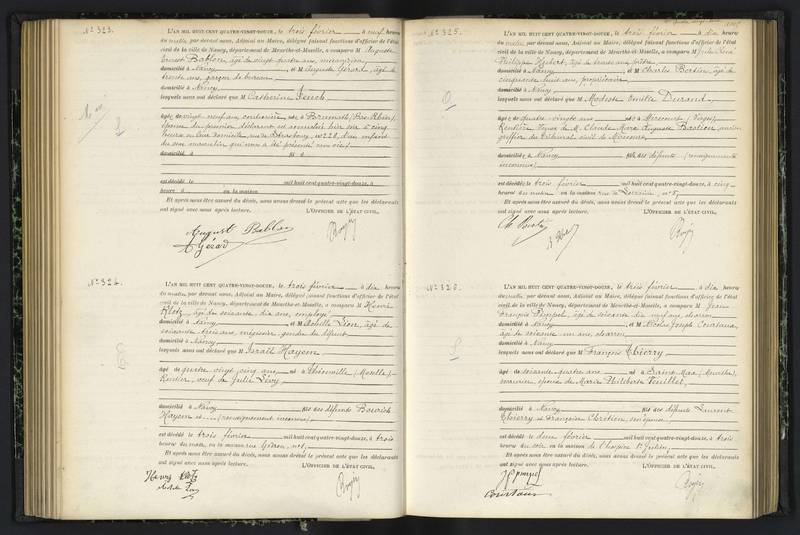 N° 323.
L'AN MIL HUIT CENT QUATRE-VINGT-DOUZE, le trois février à neuf heures
du matin, par devant nous, Adjoint au Maire, délégué faisant fonctions d'officier de l'état
civil de la ville de Nancy, département de Meurthe-et-Moselle, a comparu M Auguste
Ernest Bablon, âgé de vingt quatre ans,
domicilié à Nancy, et M Auguste Gérard, âgé de
trente ans, garçon de bureau
domicilié à Nancy
lesquels nous ont déclaré que M Catherine
âgée de vingt neuf ans, née à Brumath (Bas-Rhin),
épouse du premier déclarant est accouchée hier soir à cinq
heures en leur domicile, rue de Strasbourg, n° 228, d'un enfant
du sexe masculin qui nous a été présenté sans vie
domicilié à fil d
est décédé le mil huit cent quatre-vingt-douze, à
heure d en la maison
Et après nous être assuré du décès, nous avons dressé le présent acte que les déclarants
ont signé avec nous après lecture. L'OFFICIER DE L'ÉTAT CIVIL,
August Bablon
A Gérard
N° 324.
L'AN MIL HUIT CENT QUATRE-VINGT-DOUZE, le trois février à dix heures
du matin, par devant nous, Adjoint au Maire, délégué faisant fonctions d'officier de l'état
civil de la ville de Nancy, département de Meurthe-et-Moselle, a comparu M Henri
Klotz, âgé de soixante dix ans, employé
domicilié à Nancy, et M Achille Léon, âgé de
soixante trois ans, négociant, gendre du défunt
domicilié à Nancy
lesquels nous ont déclaré que M Israël Hayem
âgé de quatre vingt cinq ans, né à Thionville (Moselle)
Rentier, veuf de Julie Lévy
domicilié à Nancy fils des défunts
Hayem et (renseignement inconnu)
est décédé le trois février mil huit cent quatre-vingt-douze, à trois
heures du matin, en la maison rue
Et après nous être assuré du décès, nous avons dressé le présent acte que les déclarants
ont signé avec nous après lecture. L'OFFICIER DE L'ÉTAT CIVIL,
Henry Klotz
N° 325.
L'AN MIL HUIT CENT QUATRE-VINGT-DOUZE, le trois février à dix heures
du matin, par devant nous, Adjoint au Maire, délégué faisant fonctions d'officier de l'état
civil de la ville de Nancy, département de Meurthe-et-Moselle, a comparu M Jules René
Philippe Hubert, âgé de trente ans,
domicilié à Nancy, et M Charles Bertin, âgé de
cinquante huit ans, propriétaire
domicilié à Nancy
lesquels nous ont déclaré que M Modeste Emélie Durand
âgée de quatre vingts ans née à Mirecourt (Vosges)
Rentière Veuve de M. Claude Marie Auguste Bastien ancien
greffier du tribunal civil de Mirecourt
domiciliée à Nancy fille des défunts (renseignements
inconnus)
est décédée le trois février mil huit cent quatre-vingt-douze, à cinq
heures du matin en la maison rue de Lorraine, n° 5
Et après nous être assuré du décès, nous avons dressé le présent acte que les déclarants
ont signé avec nous après lecture. L'OFFICIER DE L'ÉTAT CIVIL,
L'AN MIL HUIT CENT QUATRE-VINGT-DOUZE, le trois février à dix heures
du matin, par devant nous, Adjoint au Maire, délégué faisant fonctions d'officier de l'état
civil de la ville de Nancy, département de Meurthe-et-Moselle, a comparu M Jean
François, âgé de soixante dix neuf ans, charron
domicilié à Nancy, et M Nicolas Joseph
âgé de soixante un ans, charron
domicilié à Nancy
lesquels nous ont déclaré que M François Thierry
âgé de soixante quatre ans né à Saint Max (Meurthe),
menuisier, époux de Marie
domicilié à Nancy fils des défunts Laurent
Thierry et Françoise Chrétien, son épouse
est décédé le deux février mil huit cent quatre-vingt-douze, à trois
heures du soir, en la maison de l'hospice St Julien
Et après nous être assuré du décès, nous avons dressé le présent acte que les déclarants
ont signé avec nous après lecture. L'OFFICIER DE L'ÉTAT CIVIL,